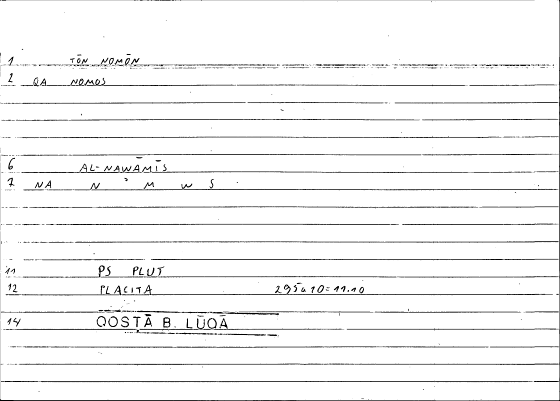 1 TŌN NOMŌN
2 QA NOMOS
6 AL-NAWĀMĪS
7 NA N M W S
11 PS PLUT
12 PLACITA 295a10=11.10
14 QOSṬĀ B. LŪQĀ